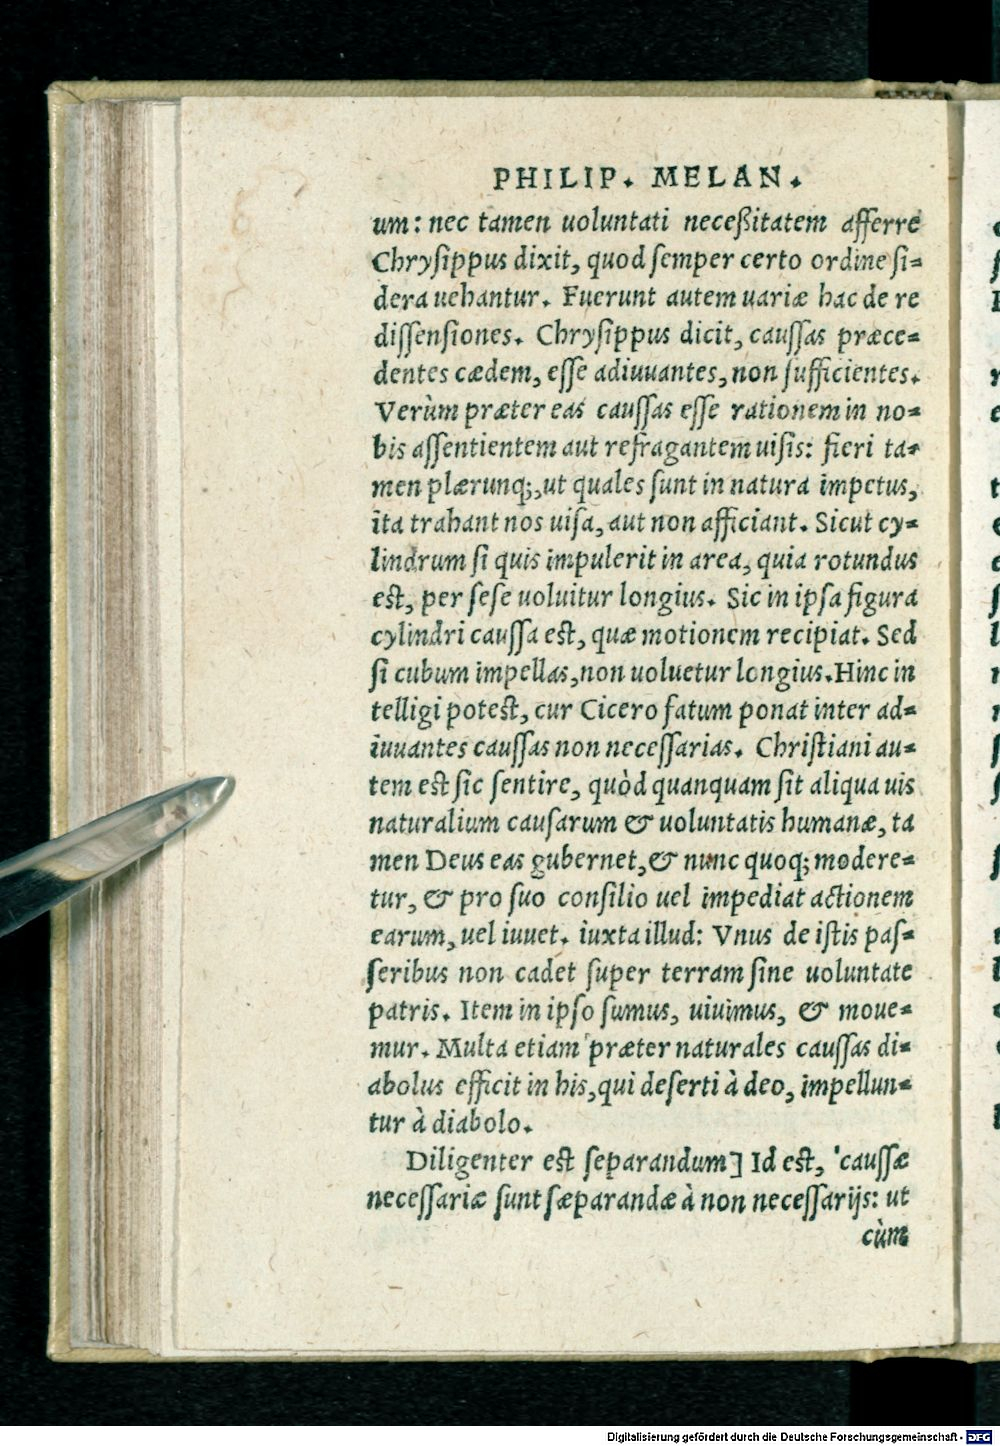 PHILIP. MELAN.
um: nec tamen uoluntati neceßitatem afferre
Chryſippus dixit, quod ſemper certo ordine ſi=
dera uehantur. Fuerunt autem uariæ hac de re
diſſenſiones. Chryſippus dicit, cauſſas præce=
dentes cædem, eſſe adiuuantes, non ſufficientes.
Verùm præter eas cauſſas eſſe rationem in no=
bis aſſentientem aut refragantem uiſis: fieri ta=
men plærunq;, ut quales ſunt in natura impetus,
ita trahant nos uiſa, aut non afficiant. Sicut cy=
lindrum ſi quis impulerit in area, quia rotundus
eſt, per ſeſe uoluitur longius. Sic in ipſa figura
cylindri cauſſa eſt, quæ motionem recipiat. Sed
ſi cubum impellas, non uoluetur longius. Hinc in
telligi poteſt, cur Cicero fatum ponat inter ad=
iuuantes cauſſas non neceſſarias. Chriſtiani au=
tem eſt ſic ſentire, quòd quanquam ſit aliqua uis
naturalium cauſarum & uoluntatis humanæ, ta
men Deus eas gubernet, & nunc quoq; modere=
tur, & pro ſuo conſilio uel impediat actionem
earum, uel iuuet. iuxta illud: Vnus de iſtis paſ=
ſeribus non cadet ſuper terram ſine uoluntate
patris. Item in ipſo ſumus, uiuimus, & moue=
mur. Multa etiam præter naturales cauſſas di=
abolus efficit in his, qui deſerti à deo, impellun=
tur à diabolo.
Diligenter eſt ſeparandum] Id eſt, cauſſæ
neceſſariæ ſunt ſæparandæ à non neceſſarijs: ut
cùm
Digitalisierung gefördert durch die Deutsche Forschungsgemeinschaft - DFG